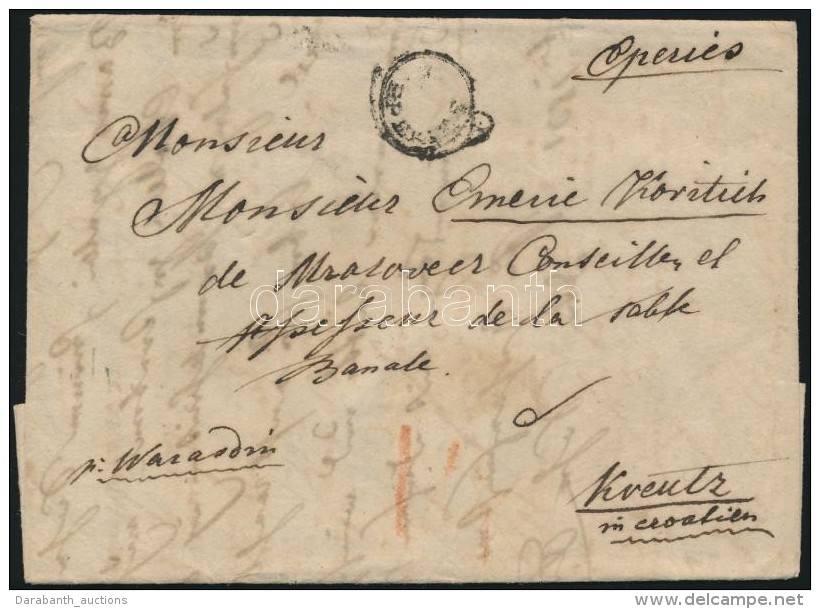 Eperies
Monsieur
Monsieur Emeric Kovitich
de Mrasoveez Conseiller et
Assesseur de la table
Banale.
p. Warasdin
Kreutz
in Croatien
darabanth
Darabanth_auctions